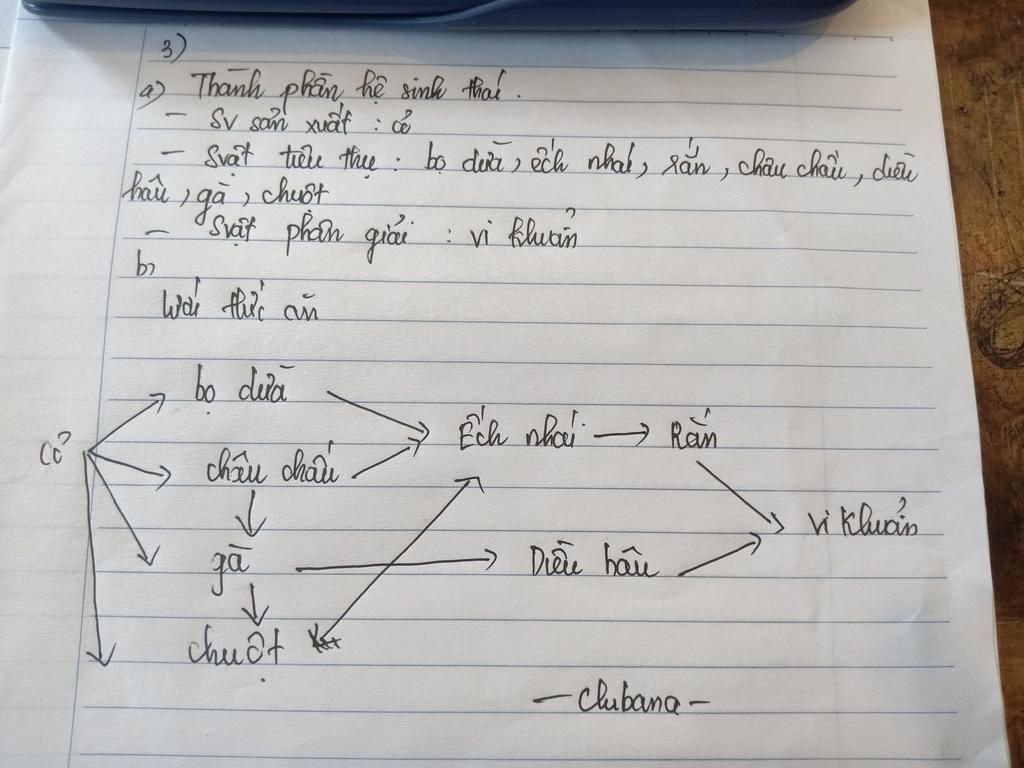 3)
a) Thành phần hệ sinh thái.
- SV sản xuất : cỏ
- Svật tiêu thụ : bọ dừa, ếch nhái, rắn, châu chấu, diều
hâu, gà, chuột
- Svật phân giải : vi khuẩn
b)
lưới thức ăn
bọ dừa
Cỏ
Ếch nhái
Rắn
châu chấu
vi khuẩn
gà
Diều hâu
chuột
- Clubana -